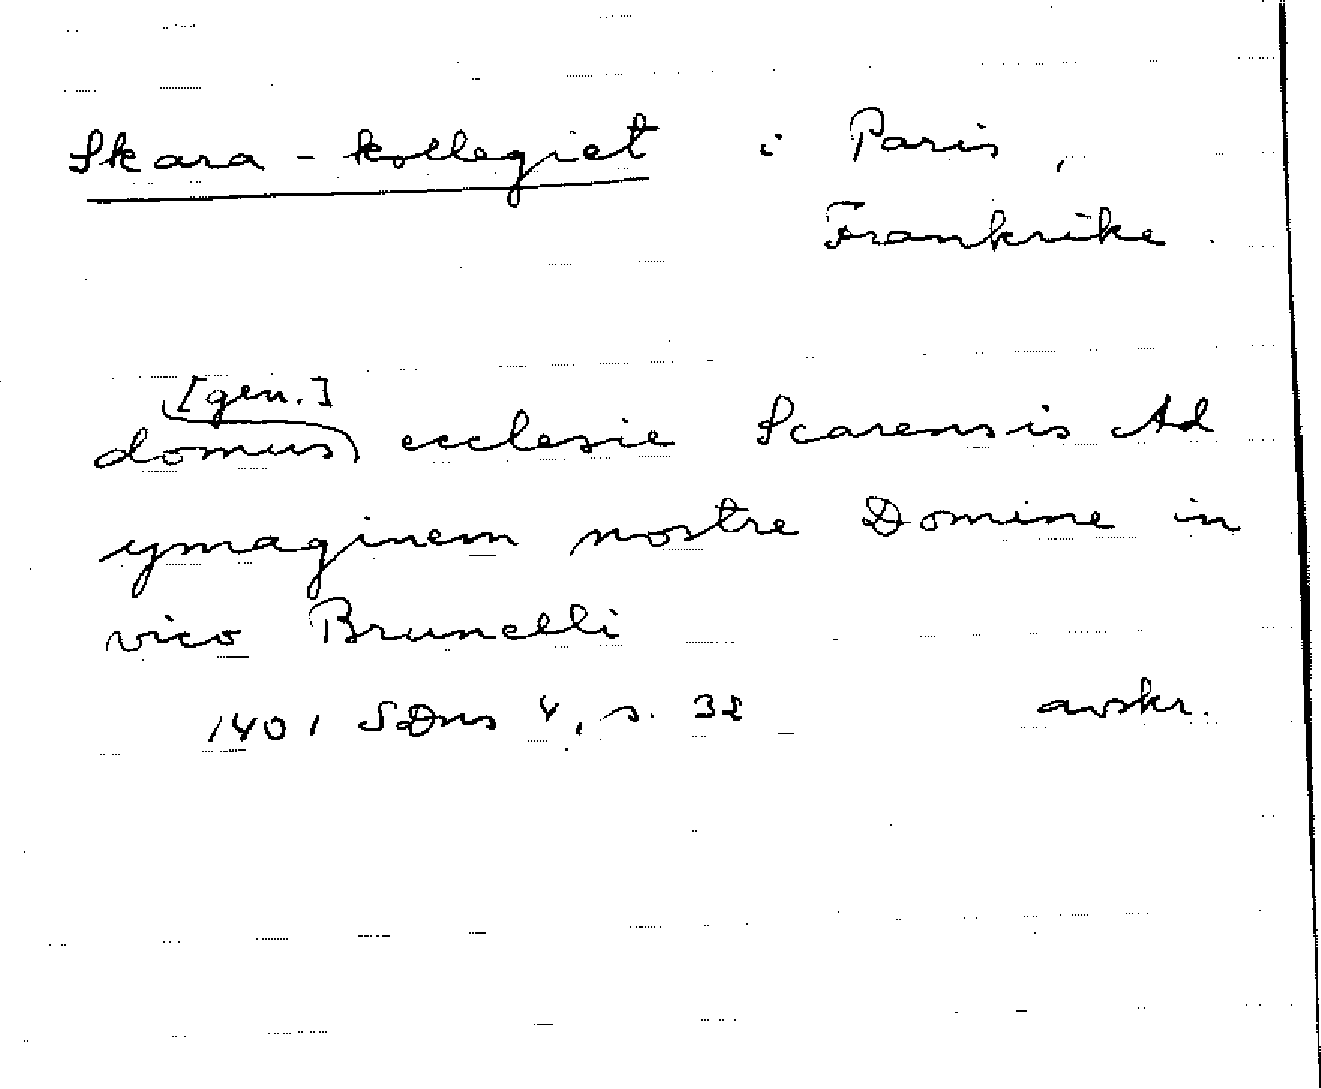 Skara-kollegiet i Paris,
Frankrike.
[gen.]
domus ecclesie Scarensis Ad
ymaginem nostre Domine in
vico Brunelli
1401 SDns 4, s. 32 avskr.